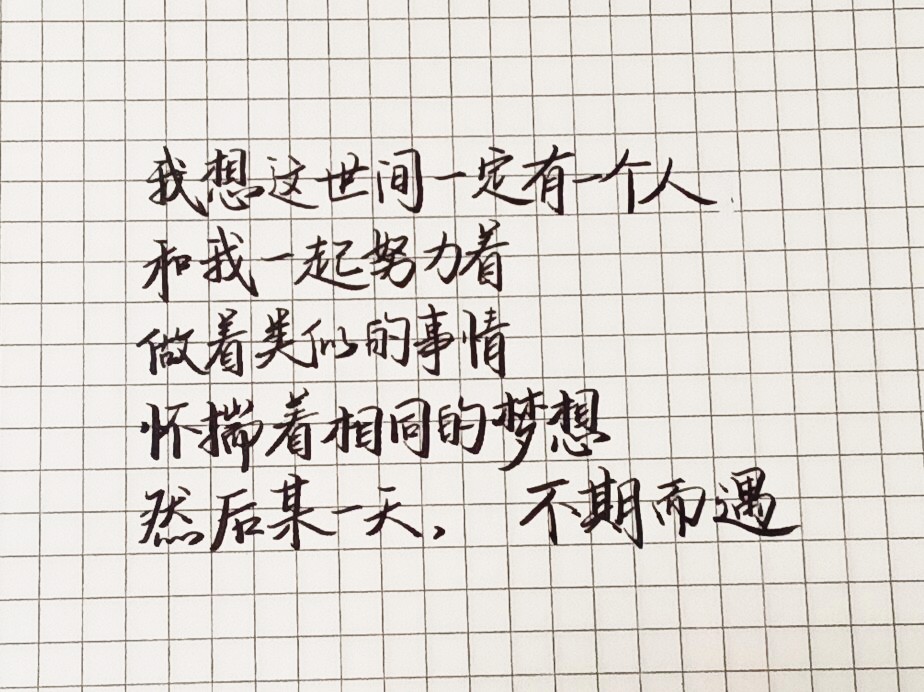 我想这世间一定有一个人
和我一起努力着
做着类似的事情
怀揣着相同的梦想
然后某一天, 不期而遇